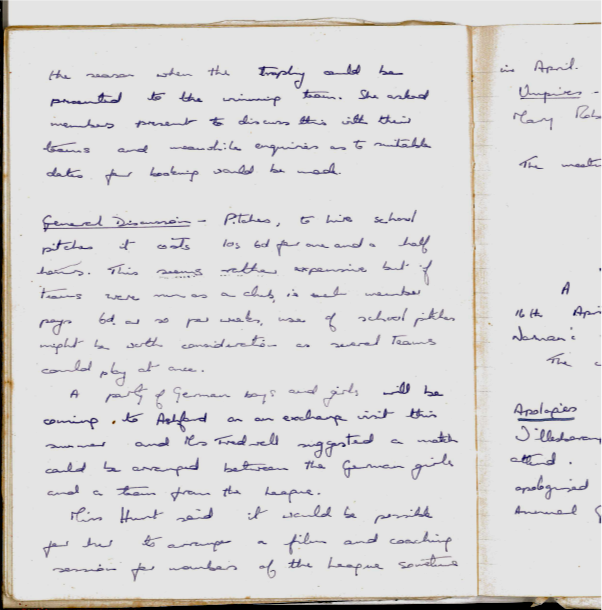 the season when the trophy could be
presented to the winning team. She asked
members present to discuss this with their
teams and meanwhile enquiries as to suitable
dates for booking would be made.
General Discussion - Pitches, to hire school
pitches it costs 10s 6d for one and a half
hours. This seems rather expensive but if
teams were run as a club, ie each member
pays 6d. or so per week, use of school pitches
might be worth consideration as several teams
could play at once.
A party of German boys and girls will be
coming to Ashford on an exchange visit this
summer and Mrs Tredwell suggested a match
could be arranged between the German girls
and a team from the League.
Miss Hunt said it would be possible
for her to arrange a film and coaching
session for members of the League sometime
in April.
Umpires -
Mary
The
A
16th
The
Apologies
attend.
apologised
Annual